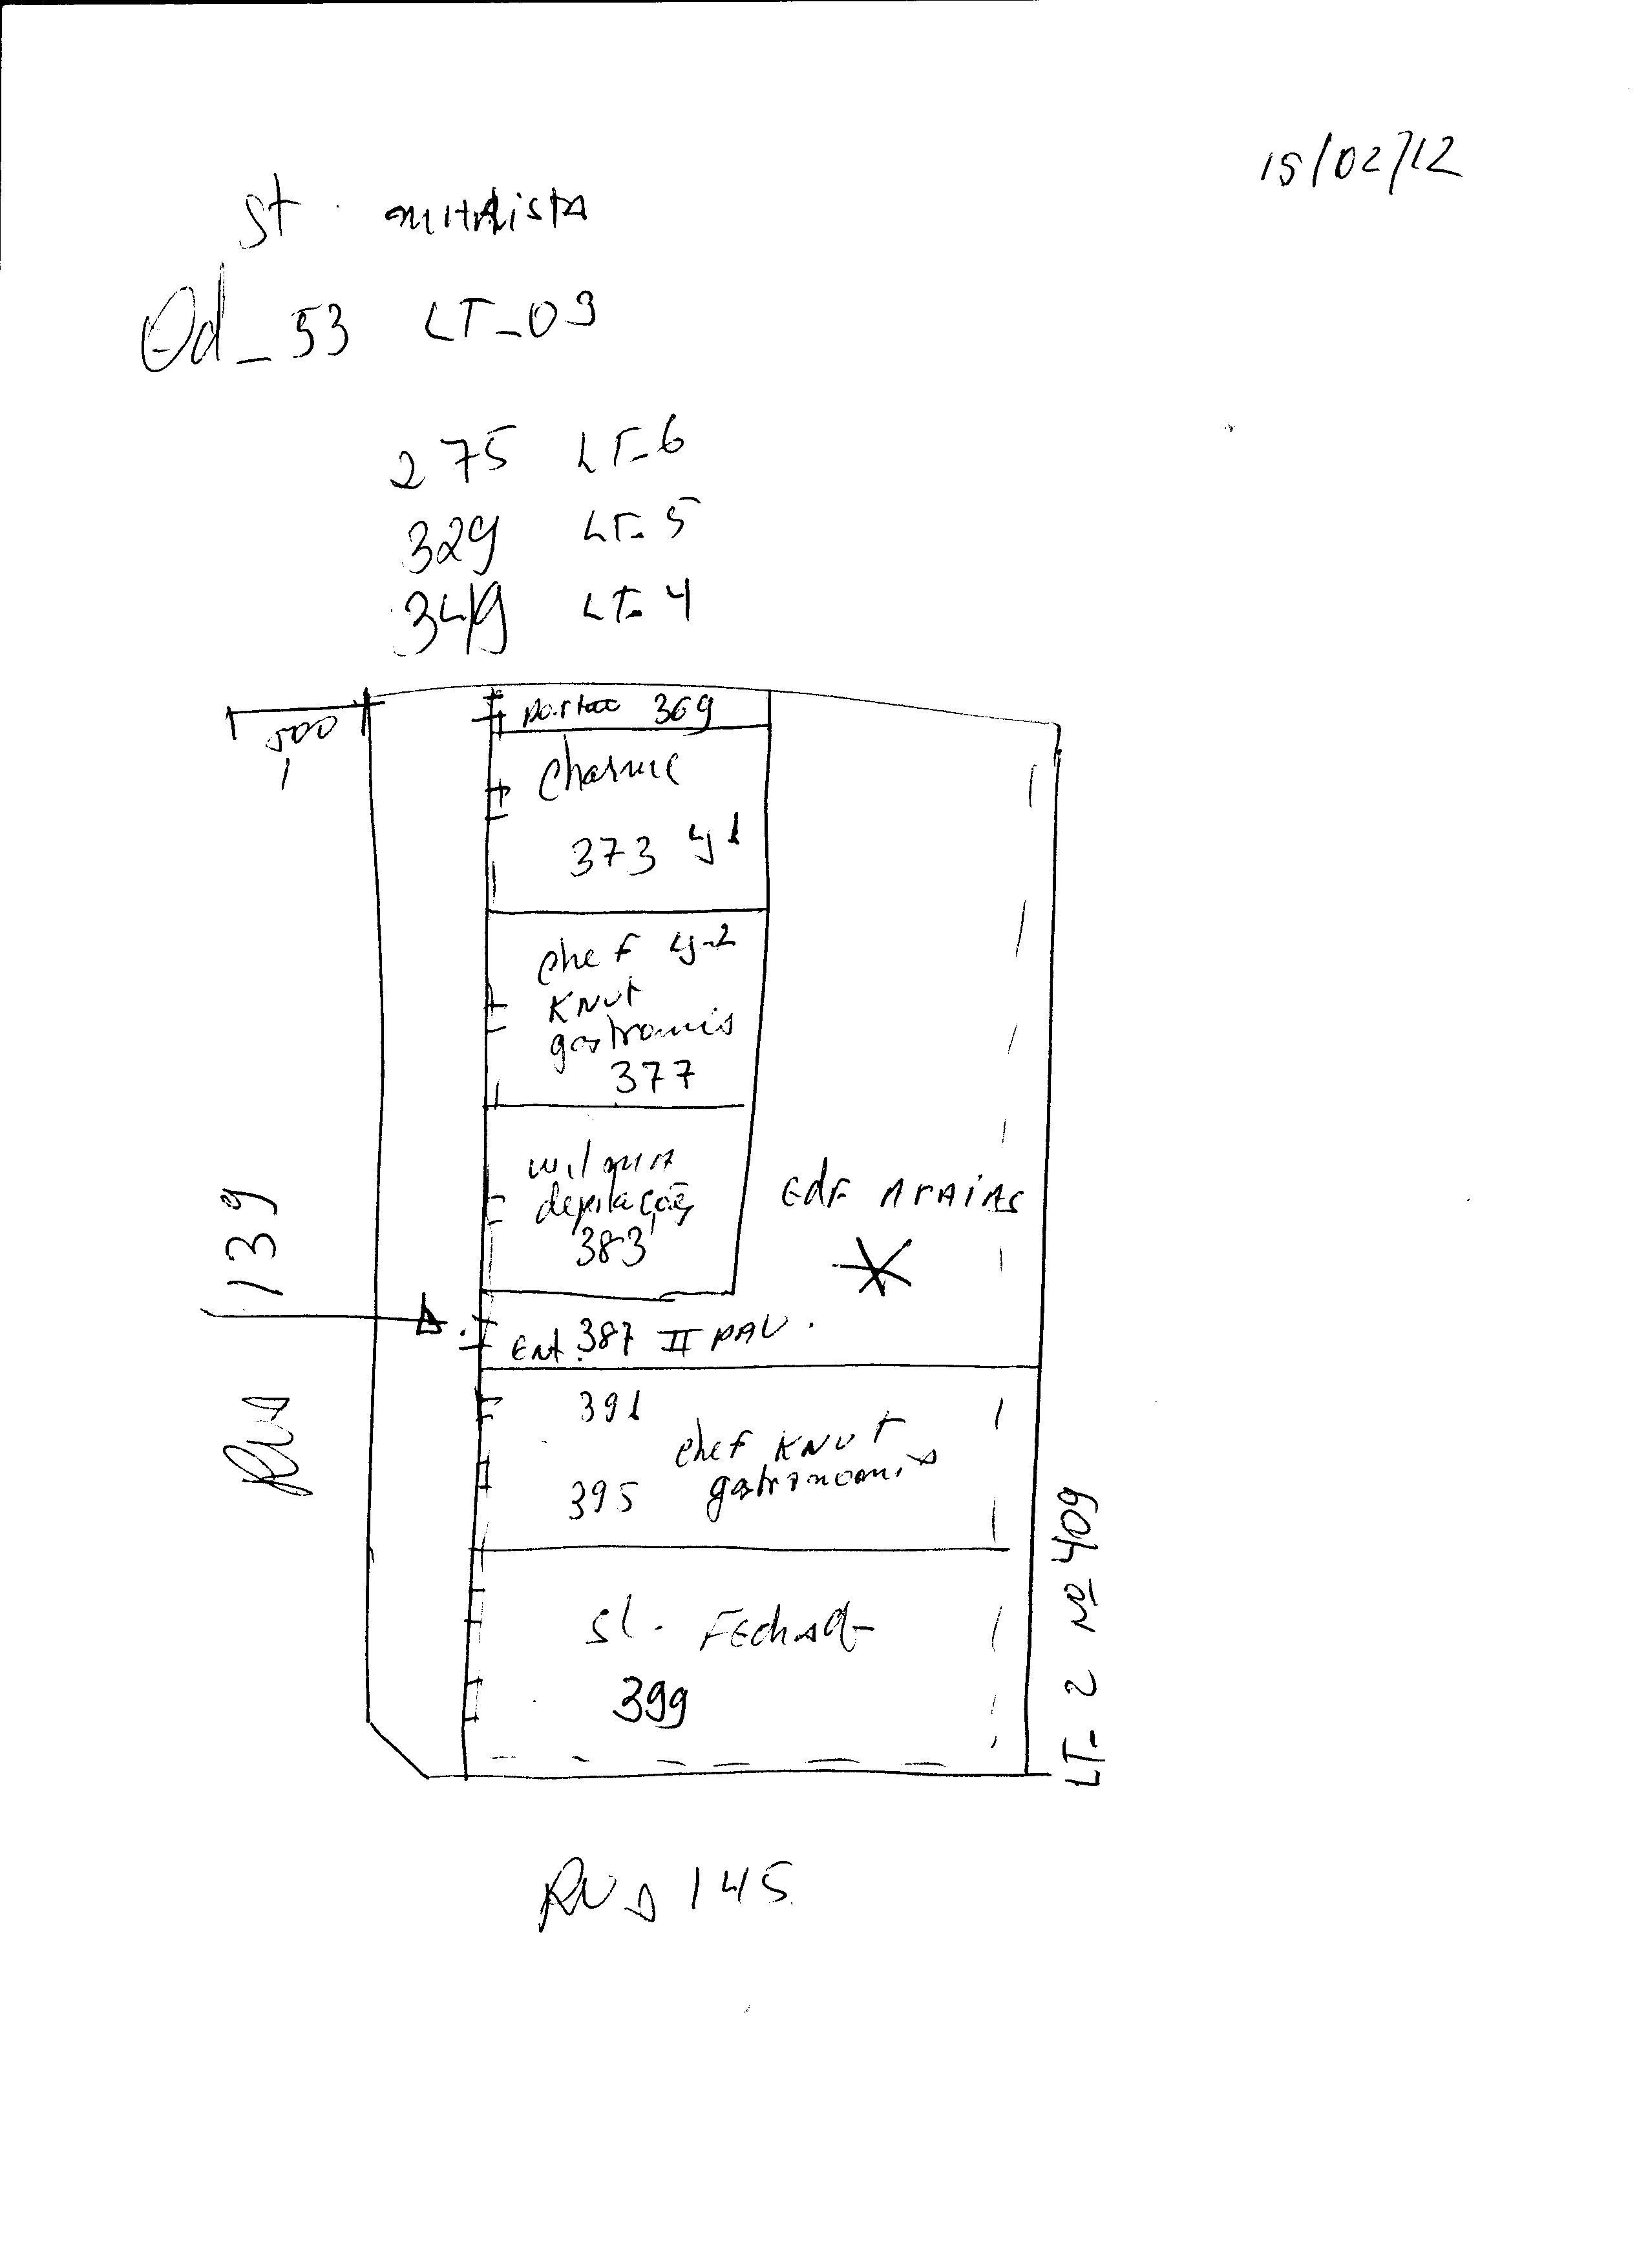 15/02/12
St. MARISTA
Qd_53 LT_03
275 LT-6
329 LT-5
349 LT-4
5,00
portão 369
Charme
373 Lj 1
chef Lj-2
KNUT
gastronomia
377
wilma
depilação
383
EdF ARAIAS
Ent. 387 II PAV.
Rua 139
391
chef KNUT
gastronomia
395
sl. FEchada
399
LT- 2 Nº 409
RUA 145